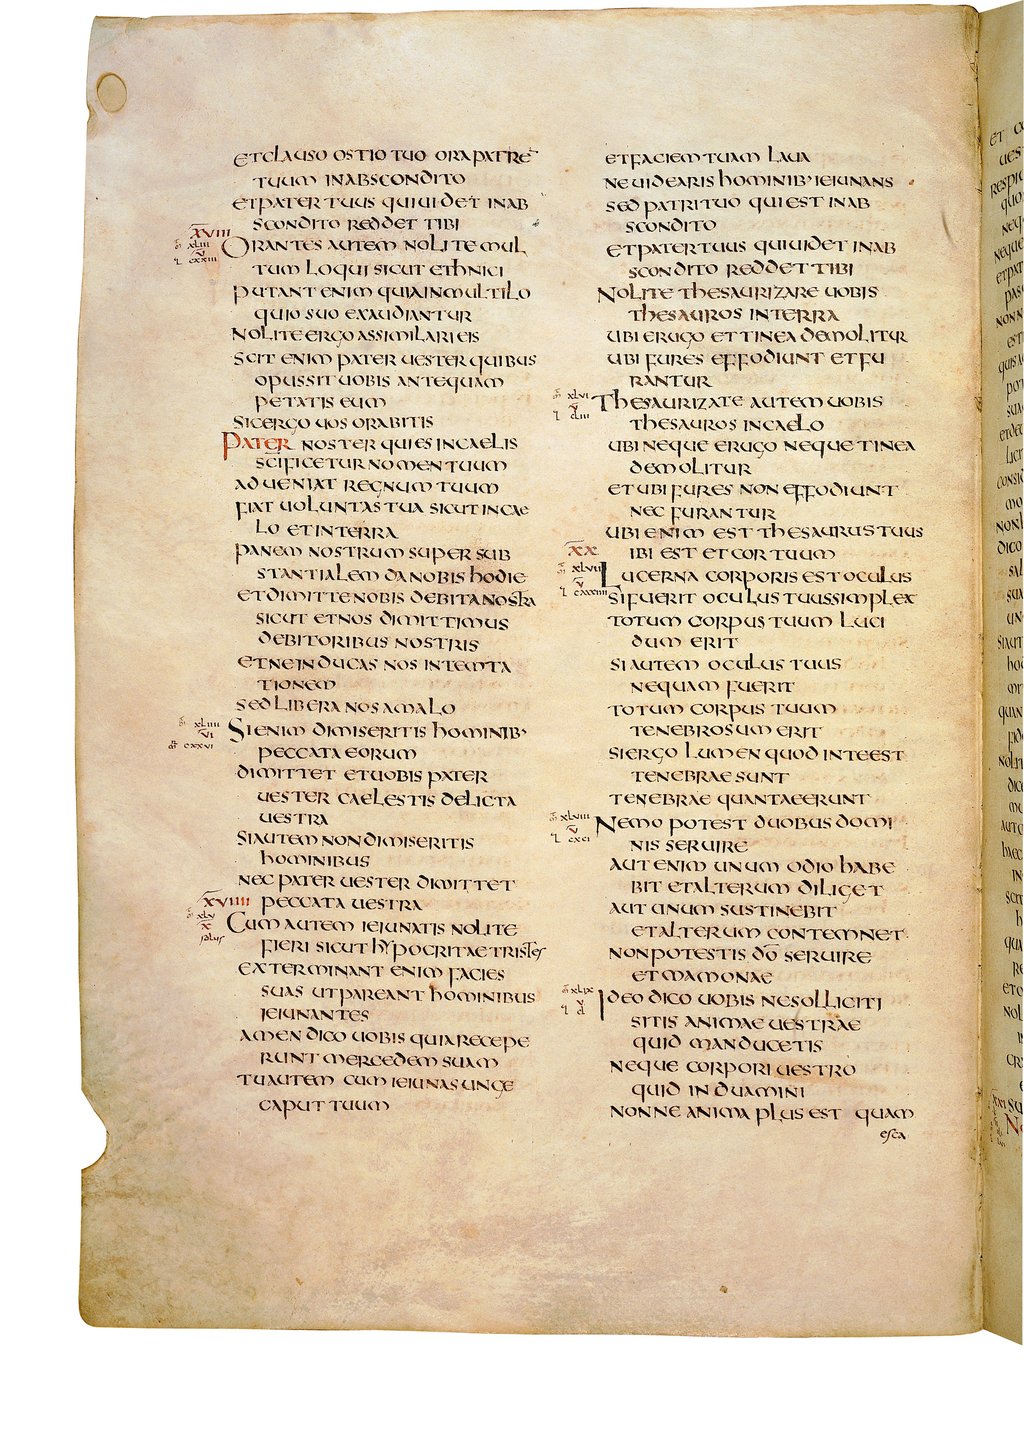 ET CLAUSO OSTIO TUO ORA PATRE
TUUM IN ABSCONDITO
ET PATER TUUS QUI UIDET IN AB
SCONDITO REDDET TIBI
XVIII
XLIII
V
CXXIII
ORANTES AUTEM NOLITE MUL
TUM LOQUI SICUT ETHNICI
PUTANT ENIM QUIA IN MULTILO
QUIO SUO EXAUDIANTUR
NOLITE ERGO ASSIMILARI EIS
SCIT ENIM PATER UESTER QUIBUS
OPUS SIT UOBIS ANTEQUAM
PETATIS EUM
SIC ERGO UOS ORABITIS
PATER NOSTER QUI ES IN CAELIS
SCIFICETUR NOMEN TUUM
ADUENIAT REGNUM TUUM
FIAT UOLUNTAS TUA SICUT IN CAE
LO ET IN TERRA
PANEM NOSTRUM SUPERSUB
STANTIALEM DA NOBIS HODIE
ET DIMITTE NOBIS DEBITA NOSTRA
SICUT ET NOS DIMITTIMUS
DEBITORIBUS NOSTRIS
ET NE INDUCAS NOS IN TEMTA
TIONEM
SED LIBERA NOS A MALO
XLIIII
VI
CXXVI
SI ENIM DIMISERITIS HOMINIB·
PECCATA EORUM
DIMITTET ET UOBIS PATER
UESTER CAELESTIS DELICTA
UESTRA
SI AUTEM NON DIMISERITIS
HOMINIBUS
NEC PATER UESTER DIMITTET
XVIIII PECCATA UESTRA
XLV
X
solus
CUM AUTEM IEIUNATIS NOLITE
FIERI SICUT HYPOCRITAE TRISTES
EXTERMINANT ENIM FACIES
SUAS UT PAREANT HOMINIBUS
IEIUNANTES
AMEN DICO UOBIS QUIA RECEPE
RUNT MERCEDEM SUAM
TU AUTEM CUM IEIUNAS UNGE
CAPUT TUUM
ET FACIEM TUAM LAUA
NE UIDEARIS HOMINIB· IEIUNANS
SED PATRI TUO QUI EST IN AB
SCONDITO
ET PATER TUUS QUI UIDET IN AB
SCONDITO REDDET TIBI
NOLITE THESAURIZARE UOBIS
THESAUROS IN TERRA
UBI ERUGO ET TINEA DEMOLITUR
UBI FURES EFFODIUNT ET FU
RANTUR
XLVI
V
CLIII
THESAURIZATE AUTEM UOBIS
THESAUROS IN CAELO
UBI NEQUE ERUGO NEQUE TINEA
DEMOLITUR
ET UBI FURES NON EFFODIUNT
NEC FURANTUR
UBI ENIM EST THESAURUS TUUS
XX IBI EST ET COR TUUM
XLVII
V
CXXXIII
LUCERNA CORPORIS EST OCULUS
SI FUERIT OCULUS TUUS SIMPLEX
TOTUM CORPUS TUUM LUCI
DUM ERIT
SI AUTEM OCULUS TUUS
NEQUAM FUERIT
TOTUM CORPUS TUUM
TENEBROSUM ERIT
SI ERGO LUMEN QUOD IN TE EST
TENEBRAE SUNT
TENEBRAE QUANTAE ERUNT
XLVIII
V
CXCI
NEMO POTEST DUOBUS DOMI
NIS SERUIRE
AUT ENIM UNUM ODIO HABE
BIT ET ALTERUM DILIGET
AUT UNUM SUSTINEBIT
ET ALTERUM CONTEMNET
NON POTESTIS DŌ SERUIRE
ET MAMONAE
XLIX
V
CL
IDEO DICO UOBIS NE SOLLICITI
SITIS ANIMAE UESTRAE
QUID MANDUCETIS
NEQUE CORPORI UESTRO
QUID INDUAMINI
NONNE ANIMA PLUS EST QUAM
esca